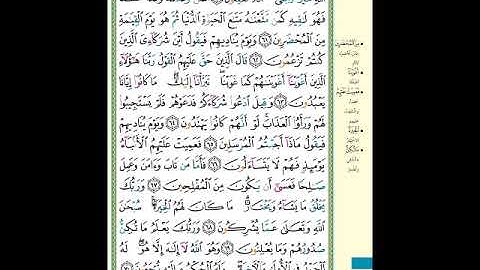 فَهُوَ لَٰقِيهِ كَمَن مَّتَّعْنَٰهُ مَتَٰعَ ٱلْحَيَوٰةِ ٱلدُّنْيَا ثُمَّ هُوَ يَوْمَ ٱلْقِيَٰمَةِ
مِنَ ٱلْمُحْضَرِينَ ٦١ وَيَوْمَ يُنَادِيهِمْ فَيَقُولُ أَيْنَ شُرَكَآءِىَ ٱلَّذِينَ
كُنتُمْ تَزْعُمُونَ ٦٢ قَالَ ٱلَّذِينَ حَقَّ عَلَيْهِمُ ٱلْقَوْلُ رَبَّنَا هَٰٓؤُلَآءِ
ٱلَّذِينَ أَغْوَيْنَآ أَغْوَيْنَٰهُمْ كَمَا غَوَيْنَا تَبَرَّأْنَآ إِلَيْكَ مَا كَانُوٓا۟ إِيَّانَا
يَعْبُدُونَ ٦٣ وَقِيلَ ٱدْعُوا۟ شُرَكَآءَكُمْ فَدَعَوْهُمْ فَلَمْ يَسْتَجِيبُوا۟
لَهُمْ وَرَأَوُا۟ ٱلْعَذَابَ لَوْ أَنَّهُمْ كَانُوا۟ يَهْتَدُونَ ٦٤ وَيَوْمَ يُنَادِيهِمْ
فَيَقُولُ مَاذَآ أَجَبْتُمُ ٱلْمُرْسَلِينَ ٦٥ فَعَمِيَتْ عَلَيْهِمُ ٱلْأَنۢبَآءُ
يَوْمَئِذٍ فَهُمْ لَا يَتَسَآءَلُونَ ٦٦ فَأَمَّا مَن تَابَ وَءَامَنَ وَعَمِلَ
صَٰلِحًا فَعَسَىٰٓ أَن يَكُونَ مِنَ ٱلْمُفْلِحِينَ ٦٧ وَرَبُّكَ
يَخْلُقُ مَا يَشَآءُ وَيَخْتَارُ مَا كَانَ لَهُمُ ٱلْخِيَرَةُ سُبْحَٰنَ
ٱللَّهِ وَتَعَٰلَىٰ عَمَّا يُشْرِكُونَ ٦٨ وَرَبُّكَ يَعْلَمُ مَا تُكِنُّ
صُدُورُهُمْ وَمَا يُعْلِنُونَ ٦٩ وَهُوَ ٱللَّهُ لَآ إِلَٰهَ إِلَّا هُوَ لَهُ